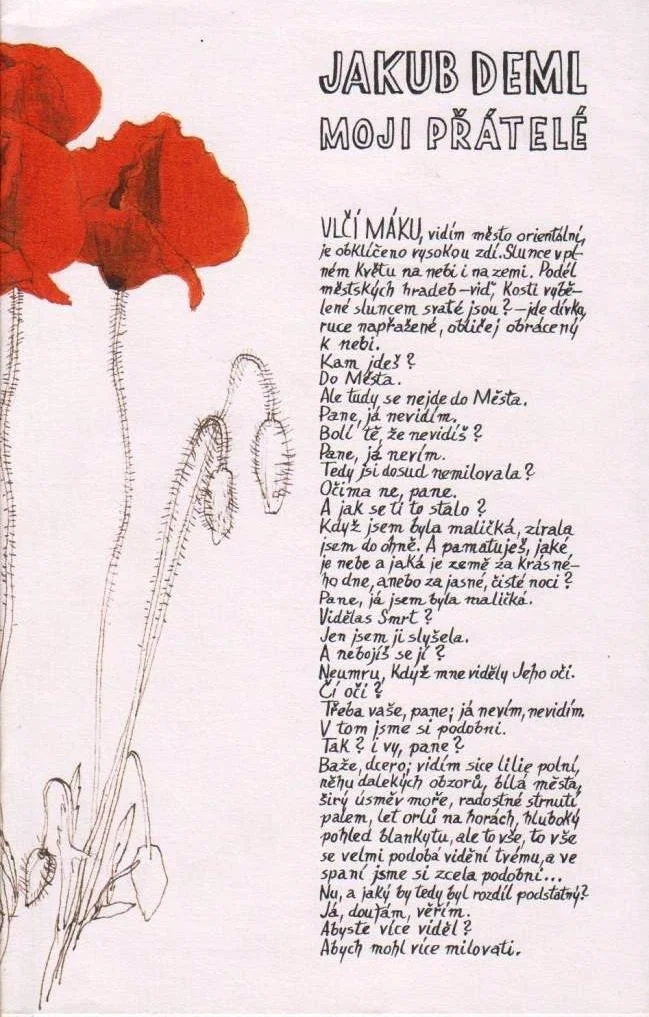 JAKUB DEML
MOJI PŘÁTELÉ
VLČÍ MÁKU, vidím město orientální,
je obklíčeno vysokou zdí. Slunce v pl-
ném Květu na nebi i na zemi. Podél
městských hradeb – viď, Kosti vybě-
lené sluncem svaté jsou? – jde dívka,
ruce napřažené, obličej obrácený
k nebi.
Kam jdeš?
Do Města.
Ale tudy se nejde do Města.
Pane, já nevidím.
Bolí tě, že nevidíš?
Pane, já nevím.
Tedy jsi dosud nemilovala?
Očima ne, pane.
A jak se ti to stalo?
Když jsem byla maličká, zírala
jsem do ohně. A pamatuješ, jaké
je nebe a jaká je země za krásné-
ho dne, anebo za jasné, čisté noci?
Pane, já jsem byla maličká.
Vidělas Smrt?
Jen jsem ji slyšela.
A nebojíš se jí?
Neumru, Když mne viděly Jeho oči.
Čí oči?
Třeba vaše, pane; já nevím, nevidím.
V tom jsme si podobni.
Tak? i vy, pane?
Baže, dcero; vidím sice lilie polní,
něhu dalekých obzorů, bílá města,
širý úsměv moře, radostné strnutí
palem, let orlů na horách, hluboký
pohled blankytu, ale to vše, to vše
se velmi podobá vidění tvému, a ve
spaní jsme si zcela podobni...
Nu, a jaký by tedy byl rozdíl podstatný?
Já, doufám, věřím.
Abyste více viděl?
Abych mohl více milovati.